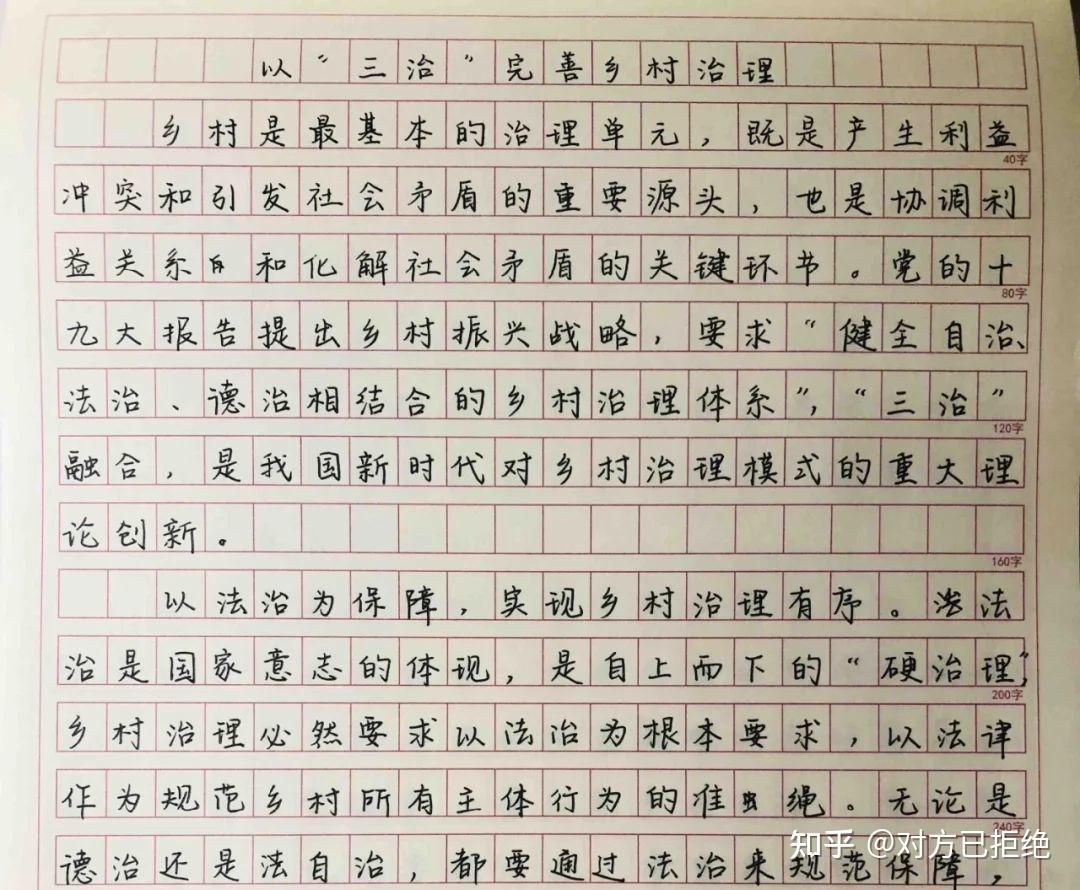 以“三治”完善乡村治理
乡村是最基本的治理单元，既是产生利益
40字
冲突和引发社会矛盾的重要源头，也是协调利
益关系和化解社会矛盾的关键环节。党的十
80字
九大报告提出乡村振兴战略，要求“健全自治、
法治、德治相结合的乡村治理体系”，“三治”
120字
融合，是我国新时代对乡村治理模式的重大理
论创新。
160字
以法治为保障，实现乡村治理有序。法
治是国家意志的体现，是自上而下的“硬治理”，
200字
乡村治理必然要求以法治为根本要求，以法律
作为规范乡村所有主体行为的准绳。无论是
240字
德治还是法自治，都要通过法治来规范保障，
知乎 @对方已拒绝